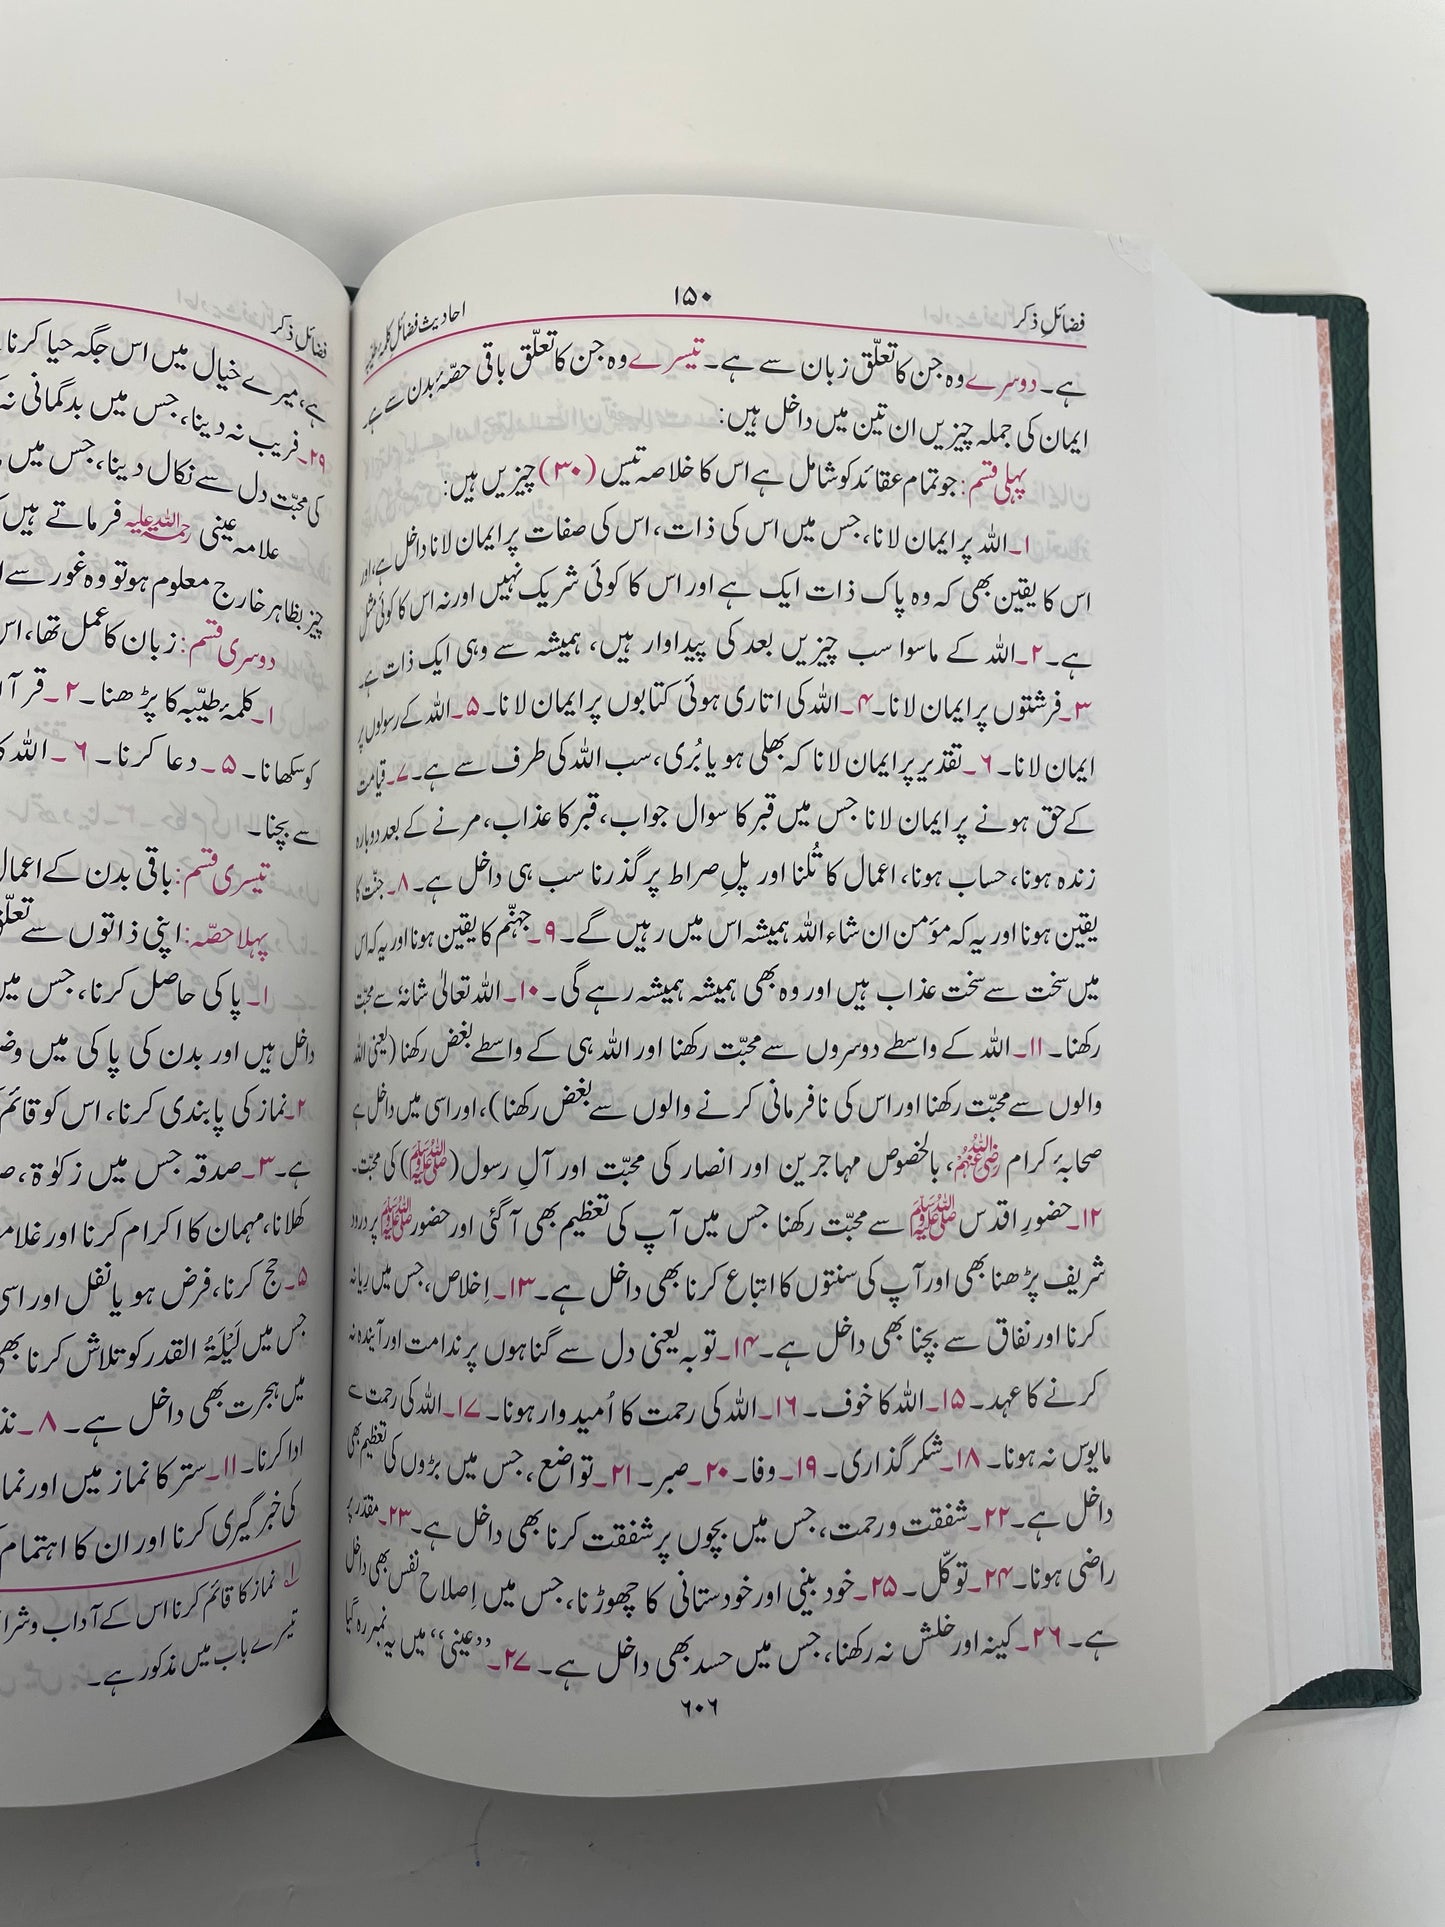 فضائلِ ذکر
۱۵۰
احادیث فضائلِ کلمۂ طیبہ
ہے۔ دوسرے وہ جن کا تعلّق زبان سے ہے۔ تیسرے وہ جن کا تعلّق باقی حصّۂ بدن سے ہے۔
ایمان کی جملہ چیزیں ان تین میں داخل ہیں:
پہلی قسم: جو تمام عقائد کو شامل ہے اس کا خلاصہ تیس (۳۰) چیزیں ہیں:
۱۔ اللہ پر ایمان لانا، جس میں اس کی ذات، اس کی صفات پر ایمان لانا داخل ہے، اور
اس کا یقین بھی کہ وہ پاک ذات ایک ہے اور اس کا کوئی شریک نہیں اور نہ اس کا کوئی مثل
ہے۔ ۲۔ اللہ کے ماسوا سب چیزیں بعد کی پیداوار ہیں، ہمیشہ سے وہی ایک ذات ہے۔
۳۔ فرشتوں پر ایمان لانا۔ ۴۔ اللہ کی اتاری ہوئی کتابوں پر ایمان لانا۔ ۵۔ اللہ کے رسولوں پر
ایمان لانا۔ ۶۔ تقدیر پر ایمان لانا کہ بھلی ہو یا بُری، سب اللہ کی طرف سے ہے۔ ۷۔ قیامت
کے حق ہونے پر ایمان لانا جس میں قبر کا سوال جواب، قبر کا عذاب، مرنے کے بعد دوبارہ
زندہ ہونا، حساب ہونا، اعمال کا تُلنا اور پلِ صراط پر گذرنا سب ہی داخل ہے۔ ۸۔ جنّت کا
یقین ہونا اور یہ کہ مؤمن ان شاء اللہ ہمیشہ اس میں رہیں گے۔ ۹۔ جہنّم کا یقین ہونا اور یہ کہ اس
میں سخت سے سخت عذاب ہیں اور وہ بھی ہمیشہ ہمیشہ رہے گی۔ ۱۰۔ اللہ تعالیٰ شانہٗ سے محبّت
رکھنا۔ ۱۱۔ اللہ کے واسطے دوسروں سے محبّت رکھنا اور اللہ ہی کے واسطے بغض رکھنا (یعنی اللہ
والوں سے محبّت رکھنا اور اس کی نافرمانی کرنے والوں سے بغض رکھنا)، اور اسی میں داخل ہے
صحابۂ کرام رضی اللہ عنہم، بالخصوص مہاجرین اور انصار کی محبّت اور آلِ رسول (ﷺ) کی محبّت۔
۱۲۔ حضورِ اقدس ﷺ سے محبّت رکھنا جس میں آپ کی تعظیم بھی آگئی اور حضور ﷺ پر درود
شریف پڑھنا بھی اور آپ کی سنتوں کا اتباع کرنا بھی داخل ہے۔ ۱۳۔ اِخلاص، جس میں رِیا نہ
کرنا اور نفاق سے بچنا بھی داخل ہے۔ ۱۴۔ توبہ یعنی دل سے گناہوں پر ندامت اور آیندہ نہ
کرنے کا عہد۔ ۱۵۔ اللہ کا خوف۔ ۱۶۔ اللہ کی رحمت کا اُمیدوار ہونا۔ ۱۷۔ اللہ کی رحمت سے
مایوس نہ ہونا۔ ۱۸۔ شکر گذاری۔ ۱۹۔ وفا۔ ۲۰۔ صبر۔ ۲۱۔ تواضع، جس میں بڑوں کی تعظیم بھی
داخل ہے۔ ۲۲۔ شفقت و رحمت، جس میں بچوں پر شفقت کرنا بھی داخل ہے۔ ۲۳۔ مقدّر پر
راضی ہونا۔ ۲۴۔ توکّل۔ ۲۵۔ خود بینی اور خودستانی کا چھوڑنا، جس میں اِصلاح نفس بھی داخل
ہے۔ ۲۶۔ کینہ اور خلش نہ رکھنا، جس میں حسد بھی داخل ہے۔ ۲۷۔ ’’عینی‘‘ میں یہ نمبر رہ گیا
۶۰۶
فضائلِ ذکر
ہے، میرے خیال میں اس جگہ حیا کرنا
۲۹۔ فریب نہ دینا، جس میں بدگمانی نہ
کی محبّت دل سے نکال دینا، جس میں
علامہ عینی رحمۃ اللہ علیہ فرماتے ہیں
چیز بظاہر خارج معلوم ہو تو وہ غور سے
دوسری قسم: زبان کا عمل تھا، اس
۱۔ کلمۂ طیّبہ کا پڑھنا۔ ۲۔ قرآ
کو سکھانا۔ ۵۔ دعا کرنا۔ ۶۔ اللہ
سے بچنا۔
تیسری قسم: باقی بدن کے اعمال
پہلا حصّہ: اپنی ذاتوں سے تعلّق
۱۔ پاکی حاصل کرنا، جس میں
داخل ہیں اور بدن کی پاکی میں وضو
۲۔ نماز کی پابندی کرنا، اس کو قائم
ہے۔ ۳۔ صدقہ جس میں زکوٰۃ،
کھلانا، مہمان کا اکرام کرنا اور
۵۔ حج کرنا، فرض ہو یا نفل اور اسی
جس میں لَیْلَۃُ القدر کو تلاش کرنا بھی
میں ہجرت بھی داخل ہے۔ ۸۔
ادا کرنا۔ ۱۱۔ ستر کا نماز میں اور
کی خبر گیری کرنا اور ان کا اہتمام
۱ نماز کا قائم کرنا اس کے آداب و
تیسرے باب میں مذکور ہے۔